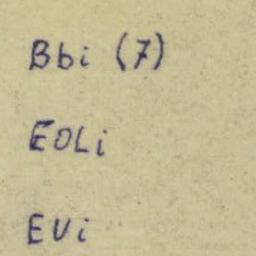 Bbi (7)
EOLi
EVi